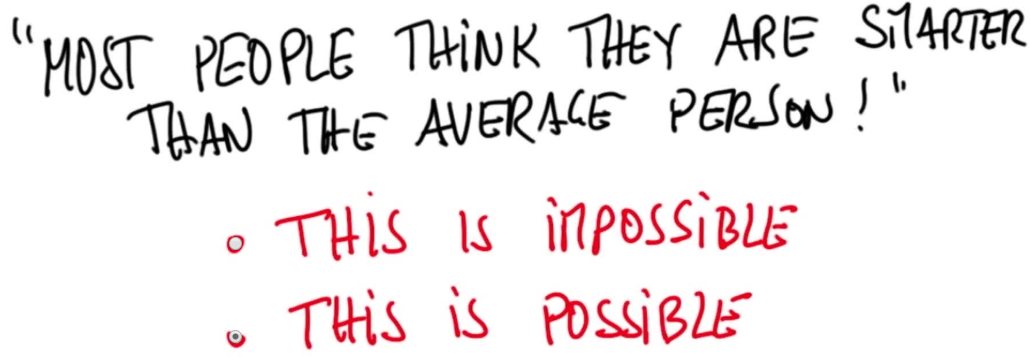 "MOST PEOPLE THINK THEY ARE SMARTER
THAN THE AVERAGE PERSON!"
THIS IS IMPOSSIBLE
THIS IS POSSIBLE